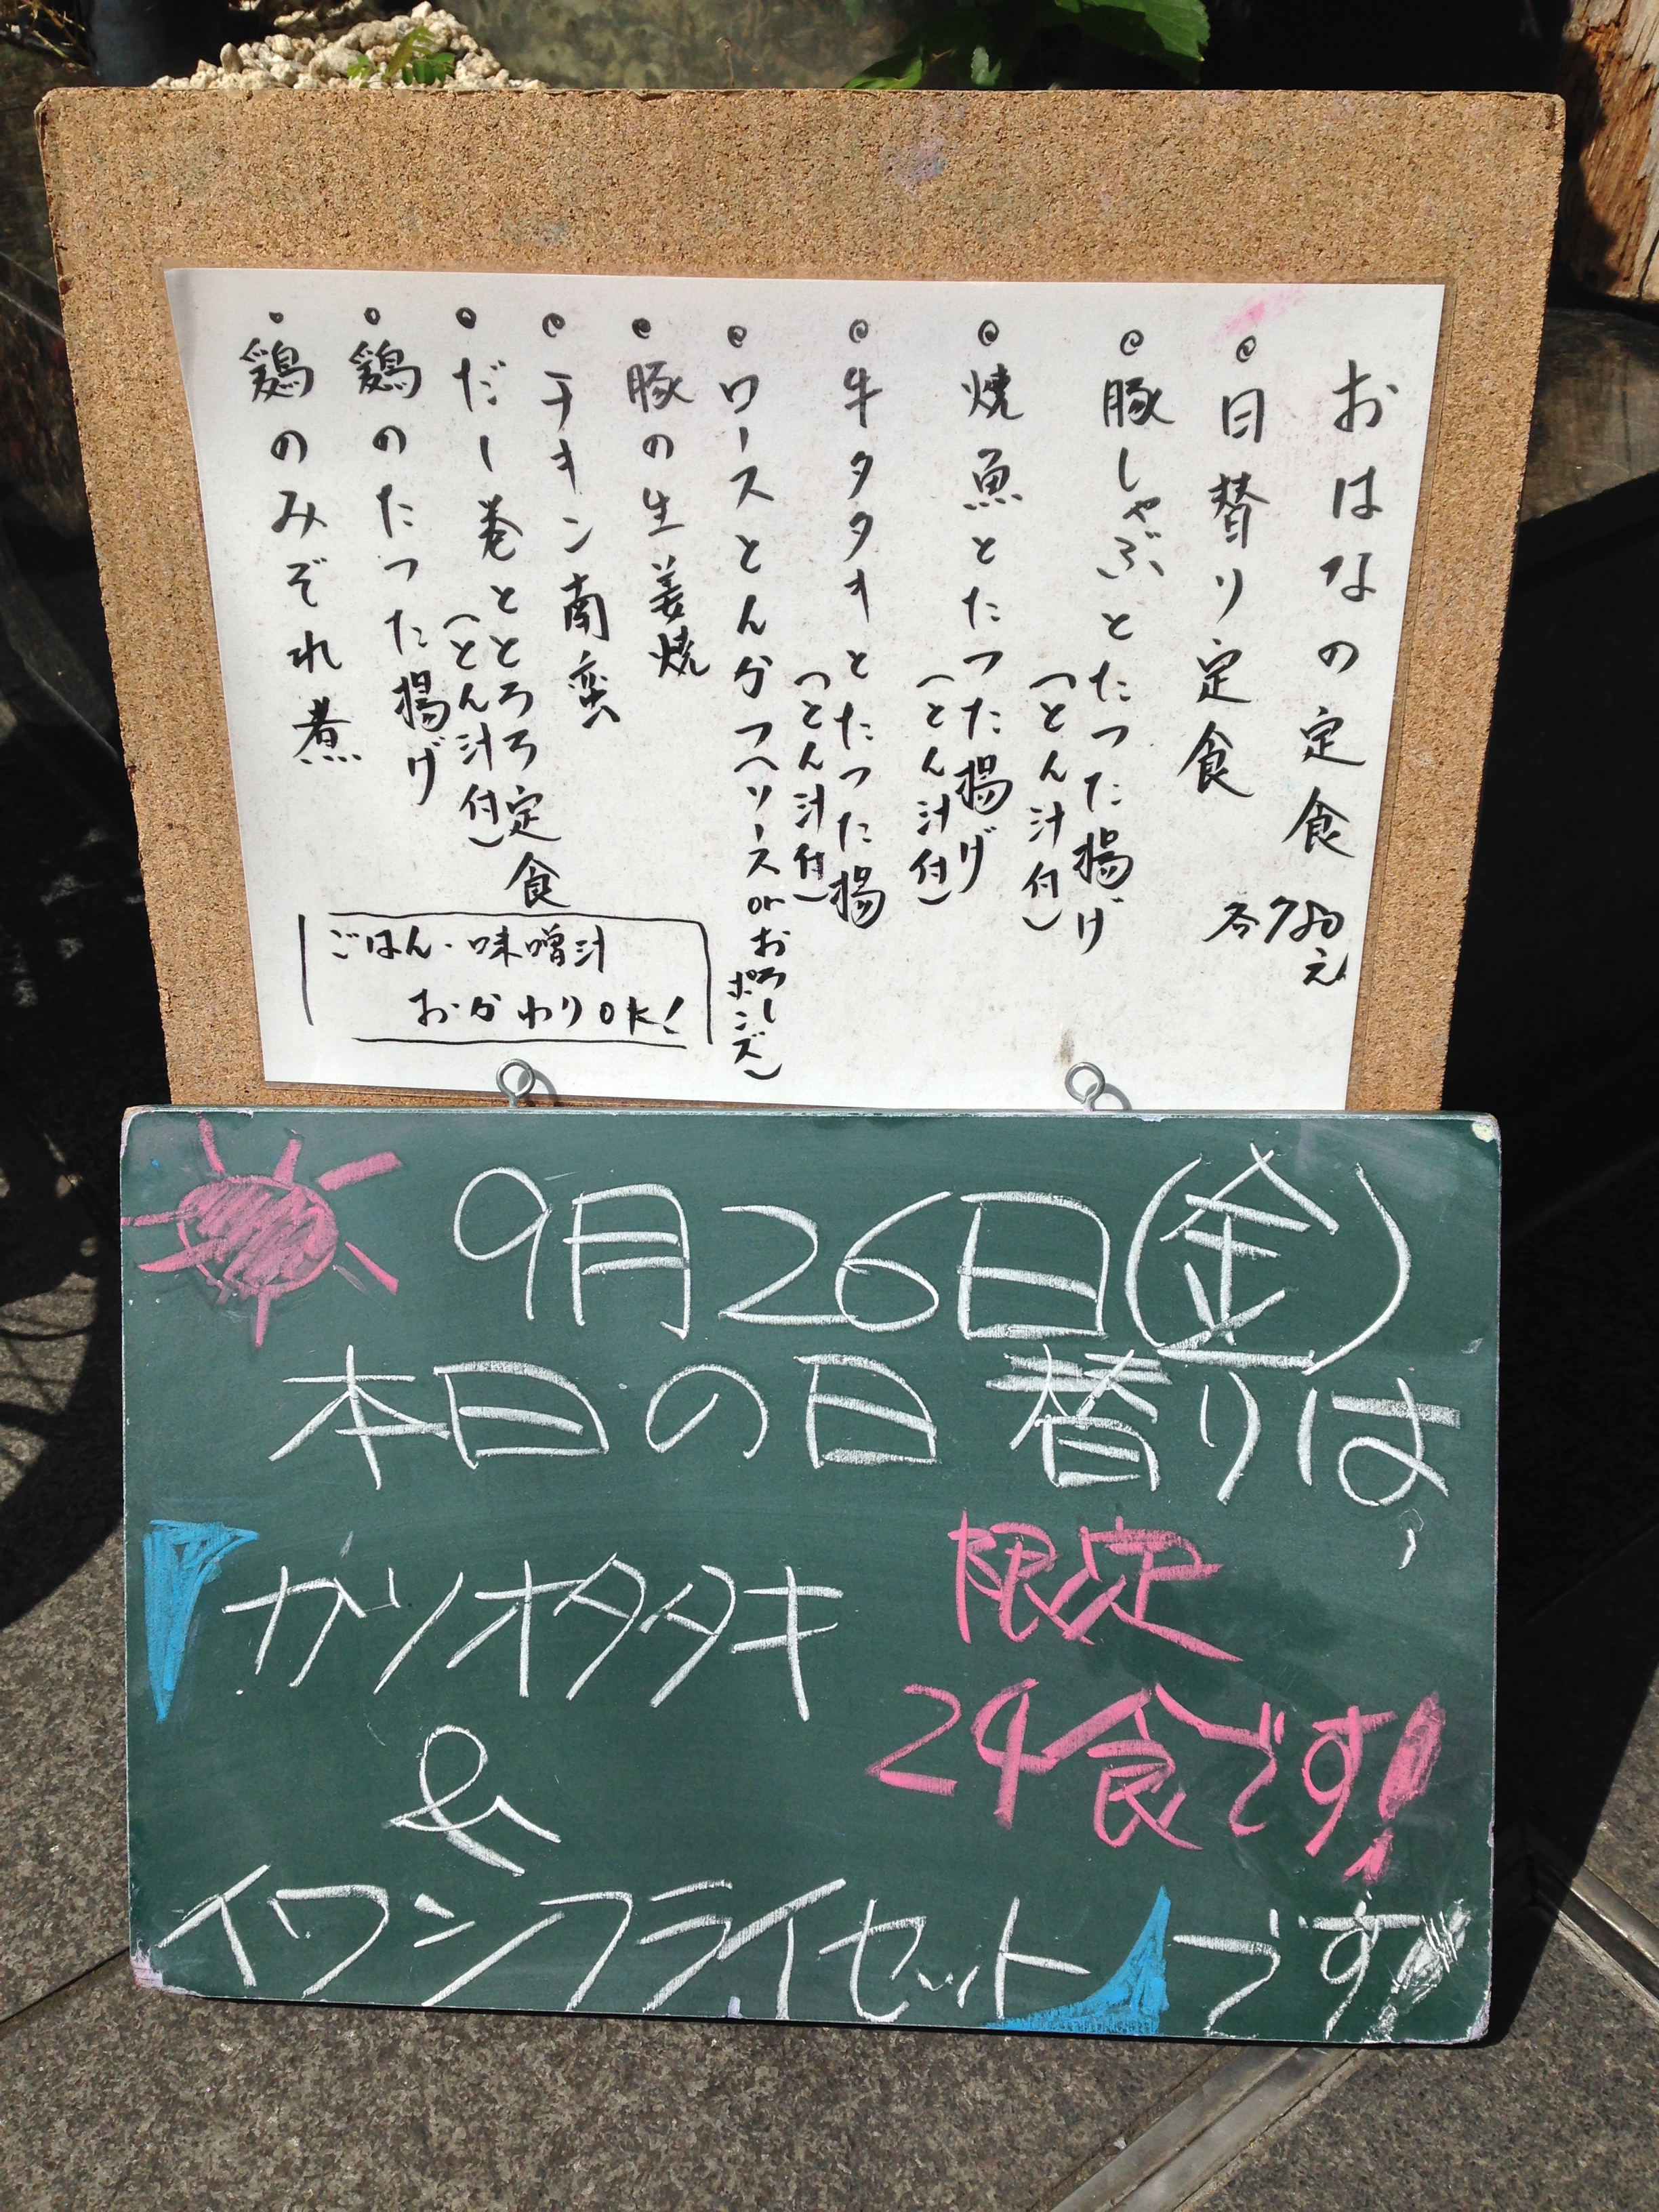 おはなの定食
各780元
・日替り定食
・豚しゃぶとたつた揚げ
(とん汁付)
・焼魚とたつた揚げ
(とん汁付)
・牛タタキとたつた揚
(とん汁付)
・ロースとんかつ(ソース or おろしポンズ)
・豚の生姜焼
・チキン南蛮
・だし巻ととろろ定食
(とん汁付)
・鶏のたつた揚げ
・鶏のみぞれ煮
ごはん・味噌汁
おかわりOK!
9月26日(金)
本日の日替りは、
「カツオタタキ
&
イワシフライセット」です!!
限定
24食です!